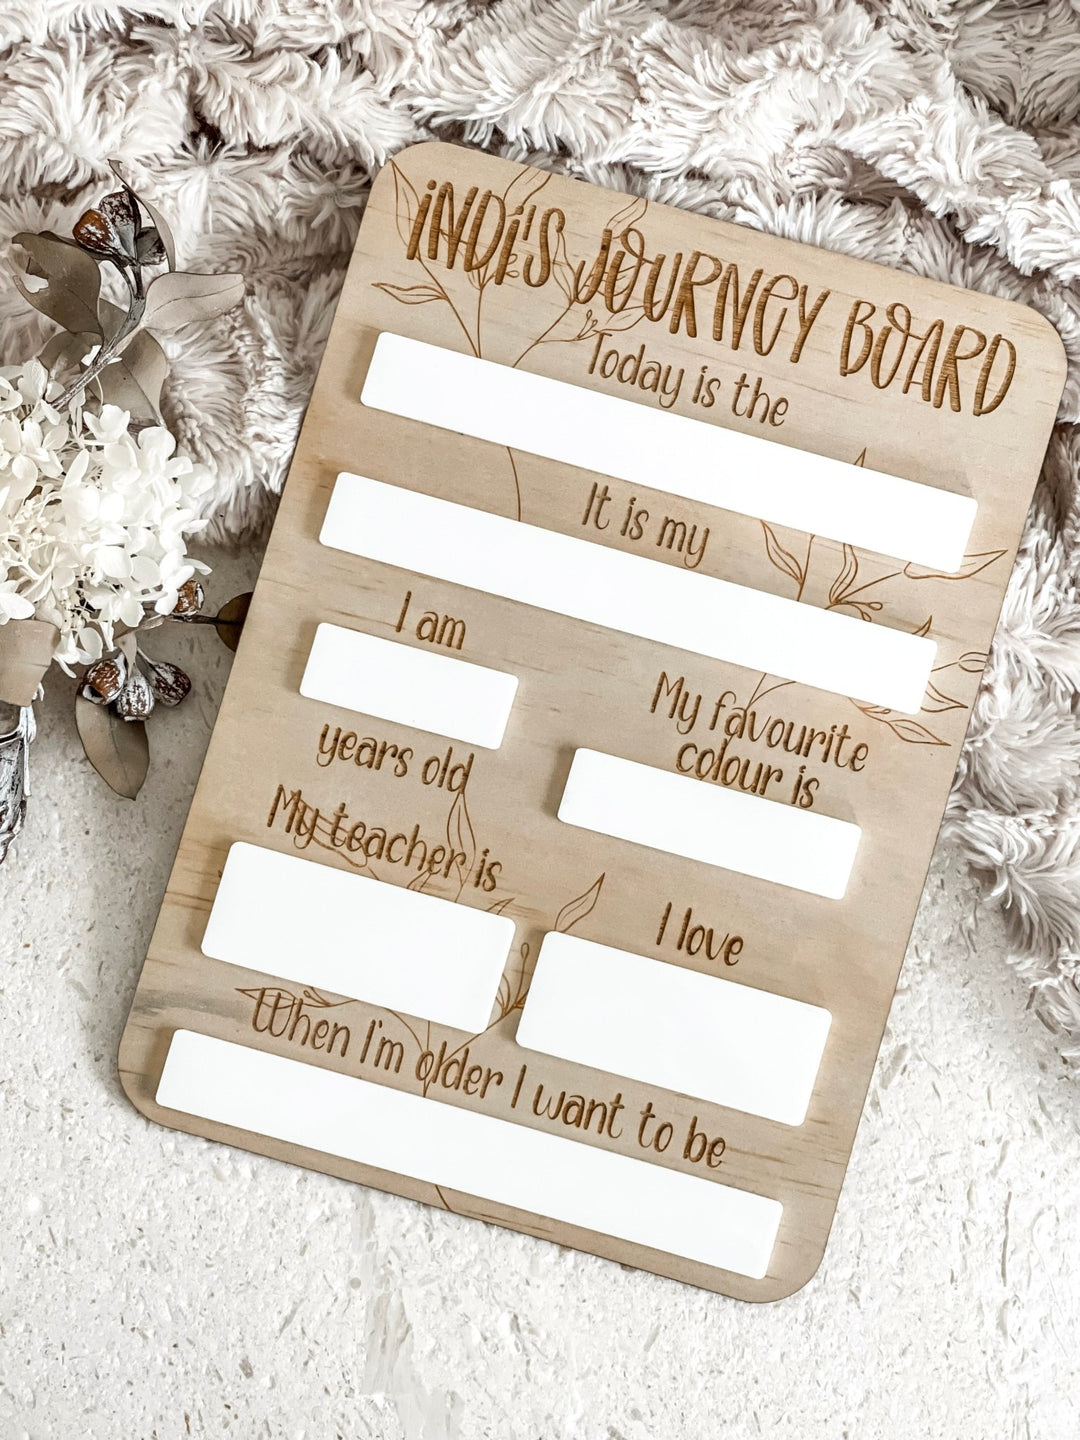 iNDi'S JOURNEY BOARD
Today is the
It is my
I am
years old
My favourite
colour is
My teacher is
I love
When I'm older I want to be